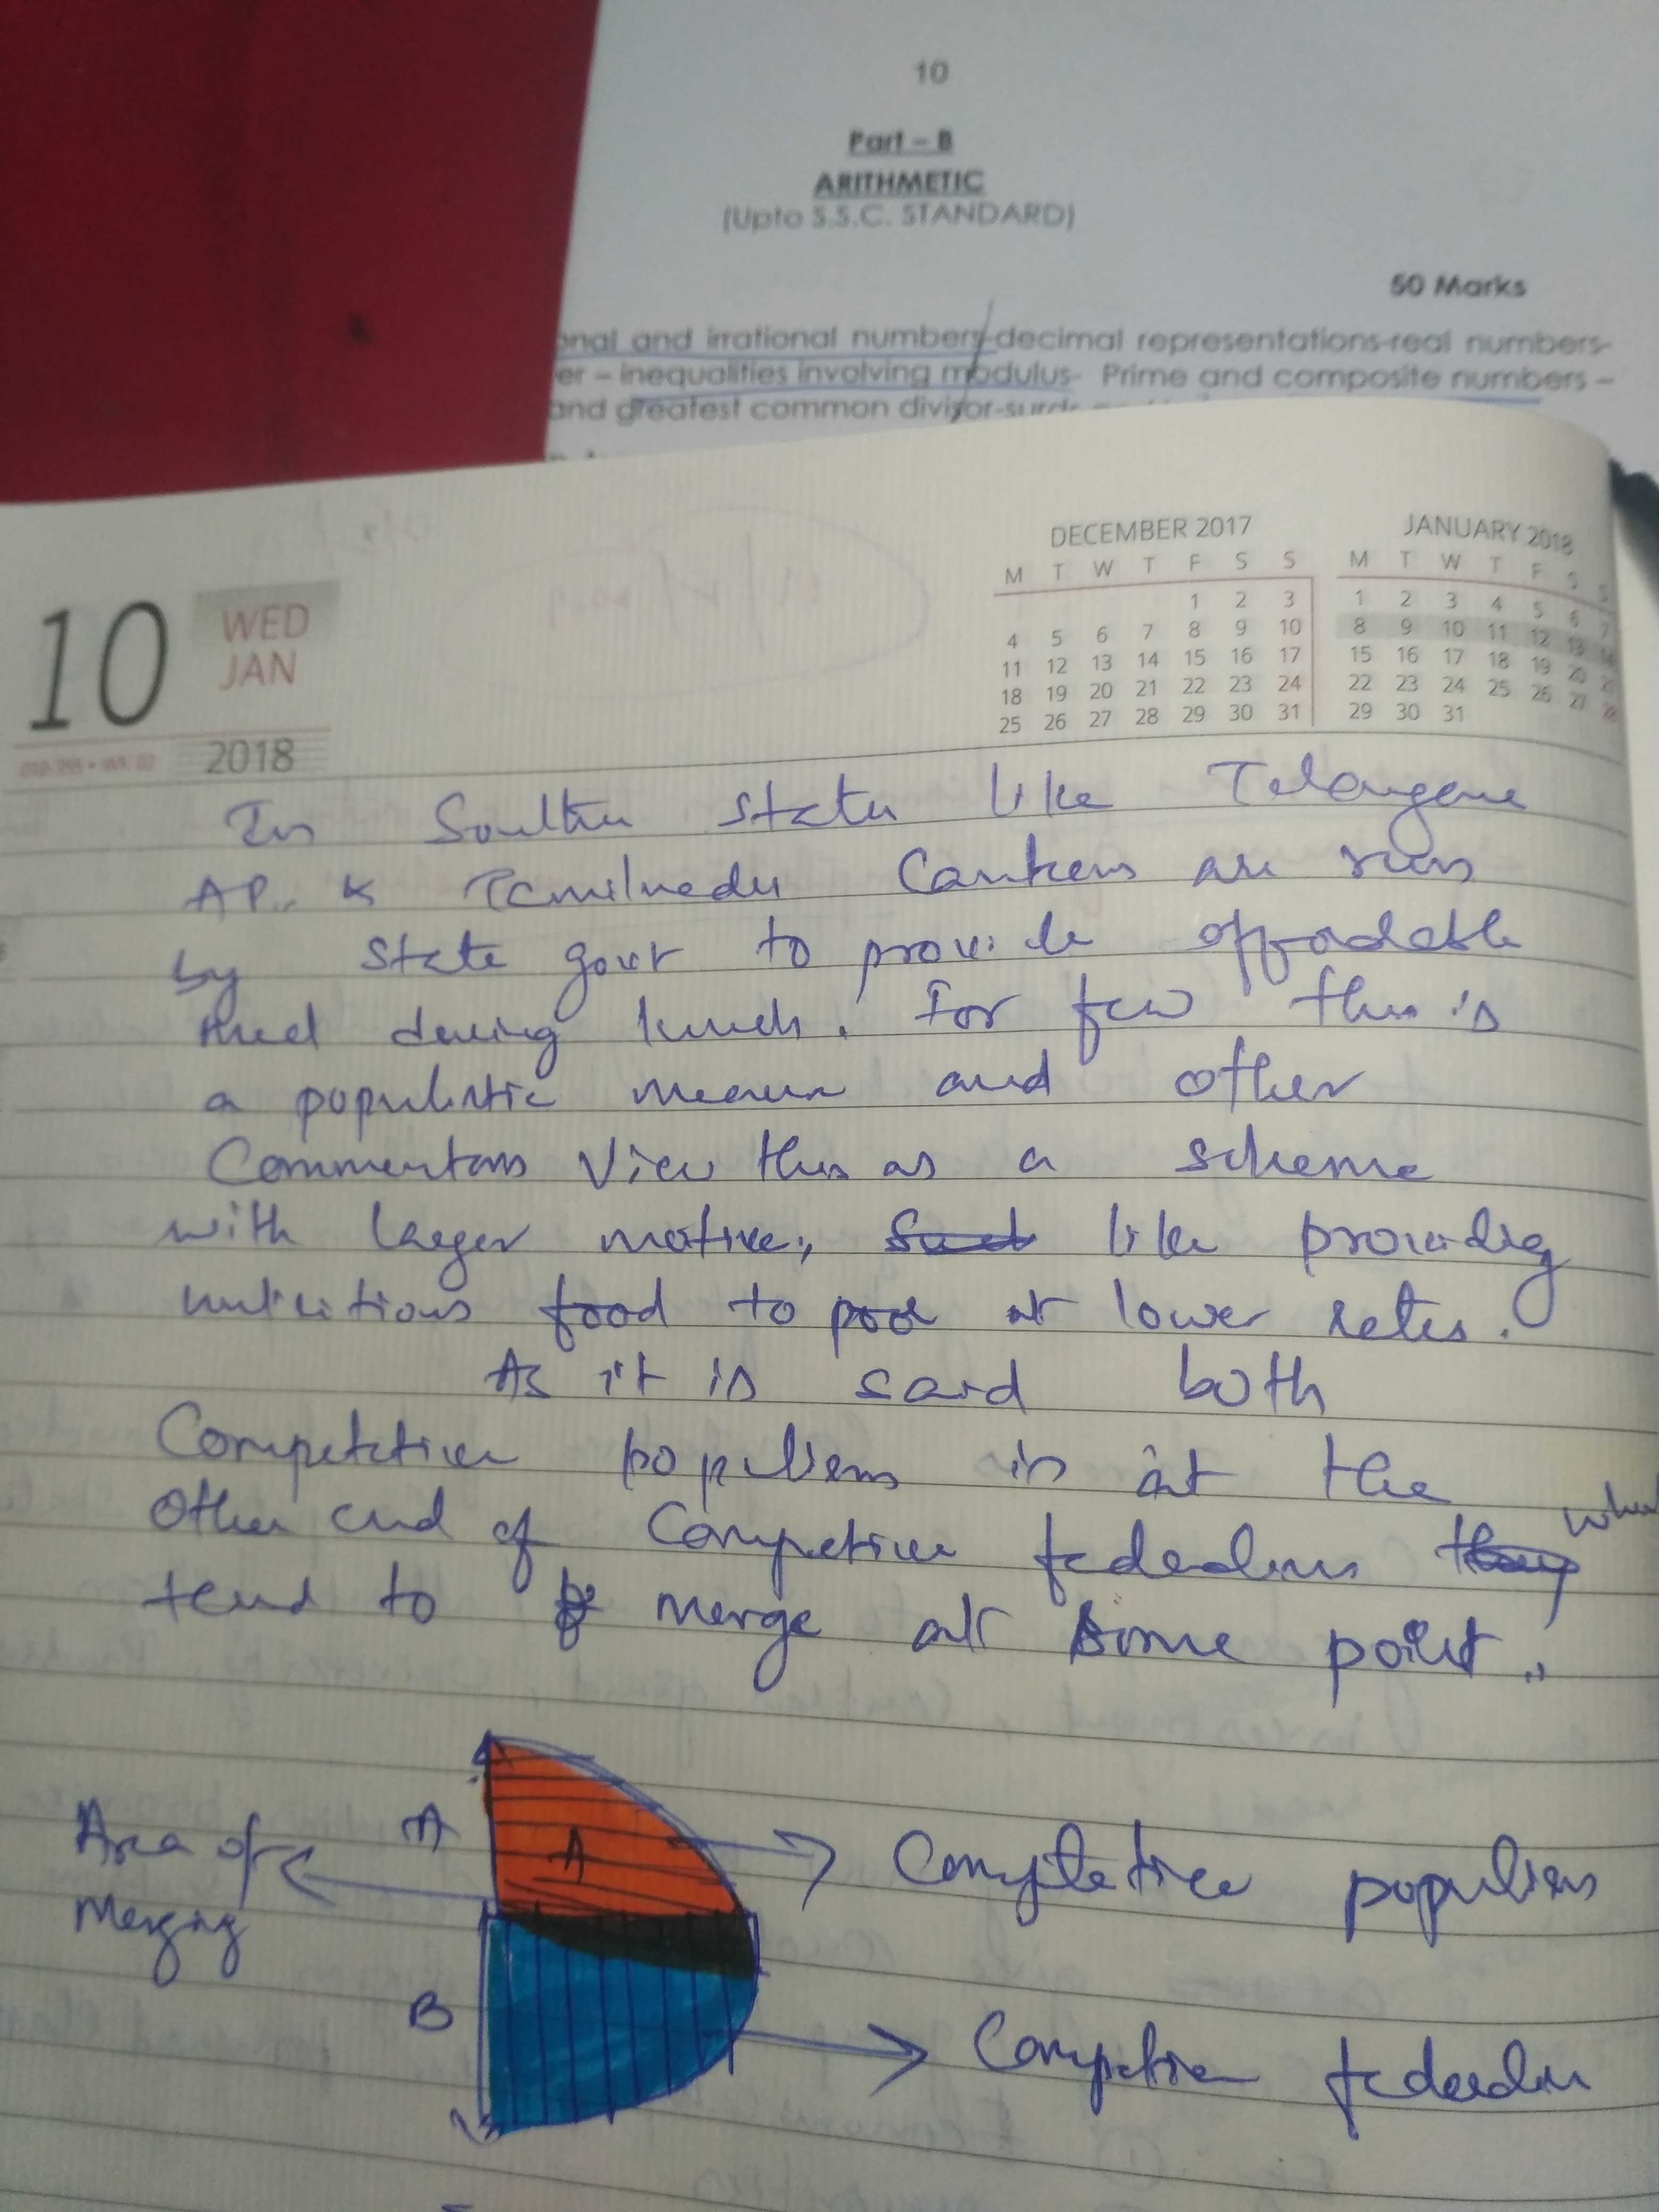 10
Part - B
ARITHMETIC
(Upto S.S.C. STANDARD)
50 Marks
onal and irrational numbers-decimal representations-real numbers-
er – inequalities involving modulus- Prime and composite numbers –
and greatest common divisor-surds
10 WED
JAN
2018
DECEMBER 2017
M T W T F S S
1 2 3
4 5 6 7 8 9 10
11 12 13 14 15 16 17
18 19 20 21 22 23 24
25 26 27 28 29 30 31
JANUARY 2018
M T W T F S S
1 2 3 4 5 6 7
8 9 10 11 12 13 14
15 16 17 18 19 20 21
22 23 24 25 26 27 28
29 30 31
In Southern States like Telangana
AP. & Tamilnadu Canteens are run
by State govt to provide affordable
meal during lunch. For few this is
a populistic measure and other
Commentators View this as a scheme
with larger motive, like providing
nutritious food to poor at lower rates.
As it is said both
Competitive populism is at the
other end of Competitive federalism
tend to merge at some point.
Area of
Merging
A
A
B
Competetive populism
Competitive federalism